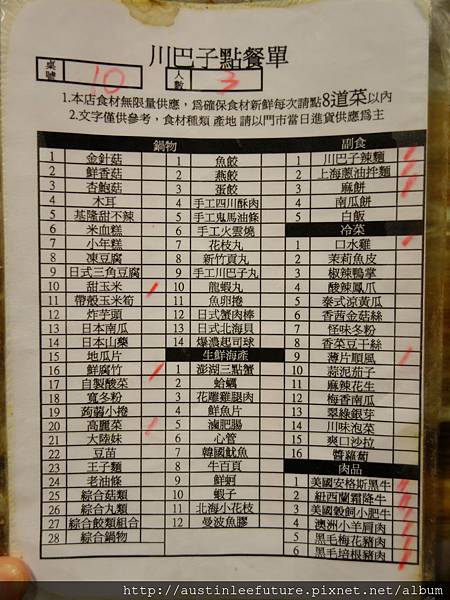 川巴子點餐單
桌號 10 人數 3
1.本店食材無限量供應，為確保食材新鮮每次請點8道菜以內
2.文字僅供參考，食材種類 產地 請以門市當日進貨供應為主
鍋物
1 金針菇
2 鮮香菇
3 杏鮑菇
4 木耳
5 基隆甜不辣
6 米血糕
7 小年糕
8 凍豆腐
9 日式三角豆腐
10 甜玉米
11 帶殼玉米筍
12 炸芋頭
13 日本南瓜
14 日本山藥
15 地瓜片
16 鮮腐竹
17 自製酸菜
18 寬冬粉
19 蒟蒻小捲
20 高麗菜
21 大陸妹
22 豆苗
23 王子麵
24 老油條
25 綜合菇類
26 綜合丸類
27 綜合餃類組合
28 綜合鍋物
1 魚餃
2 燕餃
3 蛋餃
4 手工四川酥肉
5 手工鬼馬油條
6 手工火雲燒
7 花枝丸
8 新竹貢丸
9 手工川巴子丸
10 龍蝦丸
11 魚卵捲
12 日式蟹肉棒
13 日式北海貝
14 爆濃起司球
生鮮海產
1 澎湖三點蟹
2 蛤蠣
3 花雕雞腿肉
4 鮮魚片
5 滷肥腸
6 心管
7 韓國魷魚
8 牛百頁
9 鮮蚵
10 蝦子
11 北海小花枝
12 曼波魚膠
副食
1 川巴子辣麵
2 上海蔥油拌麵
3 麻餅
4 南瓜餅
5 白飯
冷菜
1 口水雞
2 茉莉魚皮
3 椒辣鴨掌
4 酸辣鳳爪
5 泰式涼黃瓜
6 香茜金菇絲
7 怪味冬粉
8 香菜豆干絲
9 薄片順風
10 蒜泥茄子
11 麻辣花生
12 梅香南瓜
13 翠綠銀芽
14 川味泡菜
15 爽口沙拉
16 醬蘿蔔
肉品
1 美國安格斯黑牛
2 紐西蘭霜降牛
3 美國穀飼小肥牛
4 澳洲小羊肩肉
5 黑毛梅花豬肉
6 黑毛培根豬肉
http://austinleefuture.pixnet.net/album